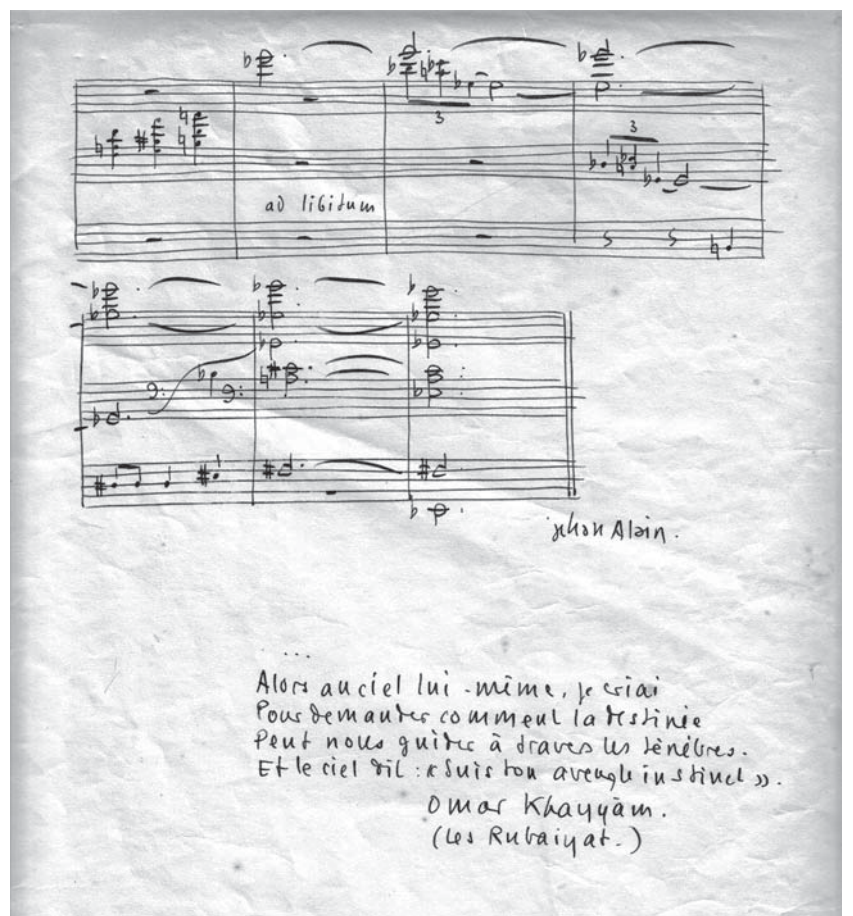 3
3
ad libitum
jehan Alain.
...
Alors au ciel lui-même, je criai
Pour demander comment la destinée
Peut nous guider à travers les ténèbres.
Et le ciel dit : « Suis ton aveugle instinct ».
Omar Khayyâm.
(Les Rubaiyat.)